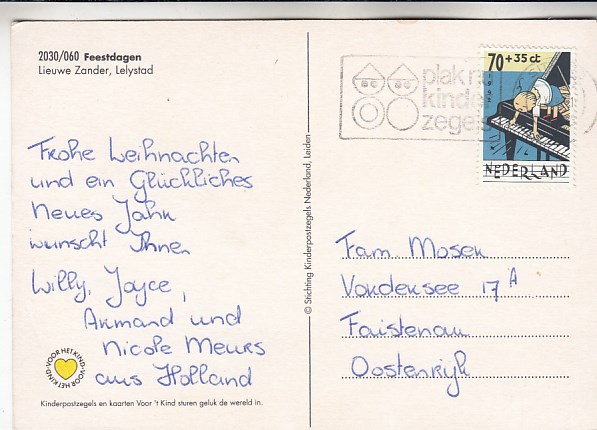 2030/060 Feestdagen
Lieuwe Zander, Lelystad
Frohe Weihnachten
und ein Glückliches
Neues Jahr
wunscht Ihnen
Willy, Joyce,
Armand und
Nicole Meurs
aus Holland
VOOR HET KIND VOOR HET KIND
Kinderpostzegels en kaarten Voor 't Kind sturen geluk de wereld in.
© Stichting Kinderpostzegels Nederland, Leiden
plak
kinder
zegels
70 + 35 ct
1992
NEDERLAND
Fam. Moser
Vordersee 17 A
Faistenau
Oostenrijk